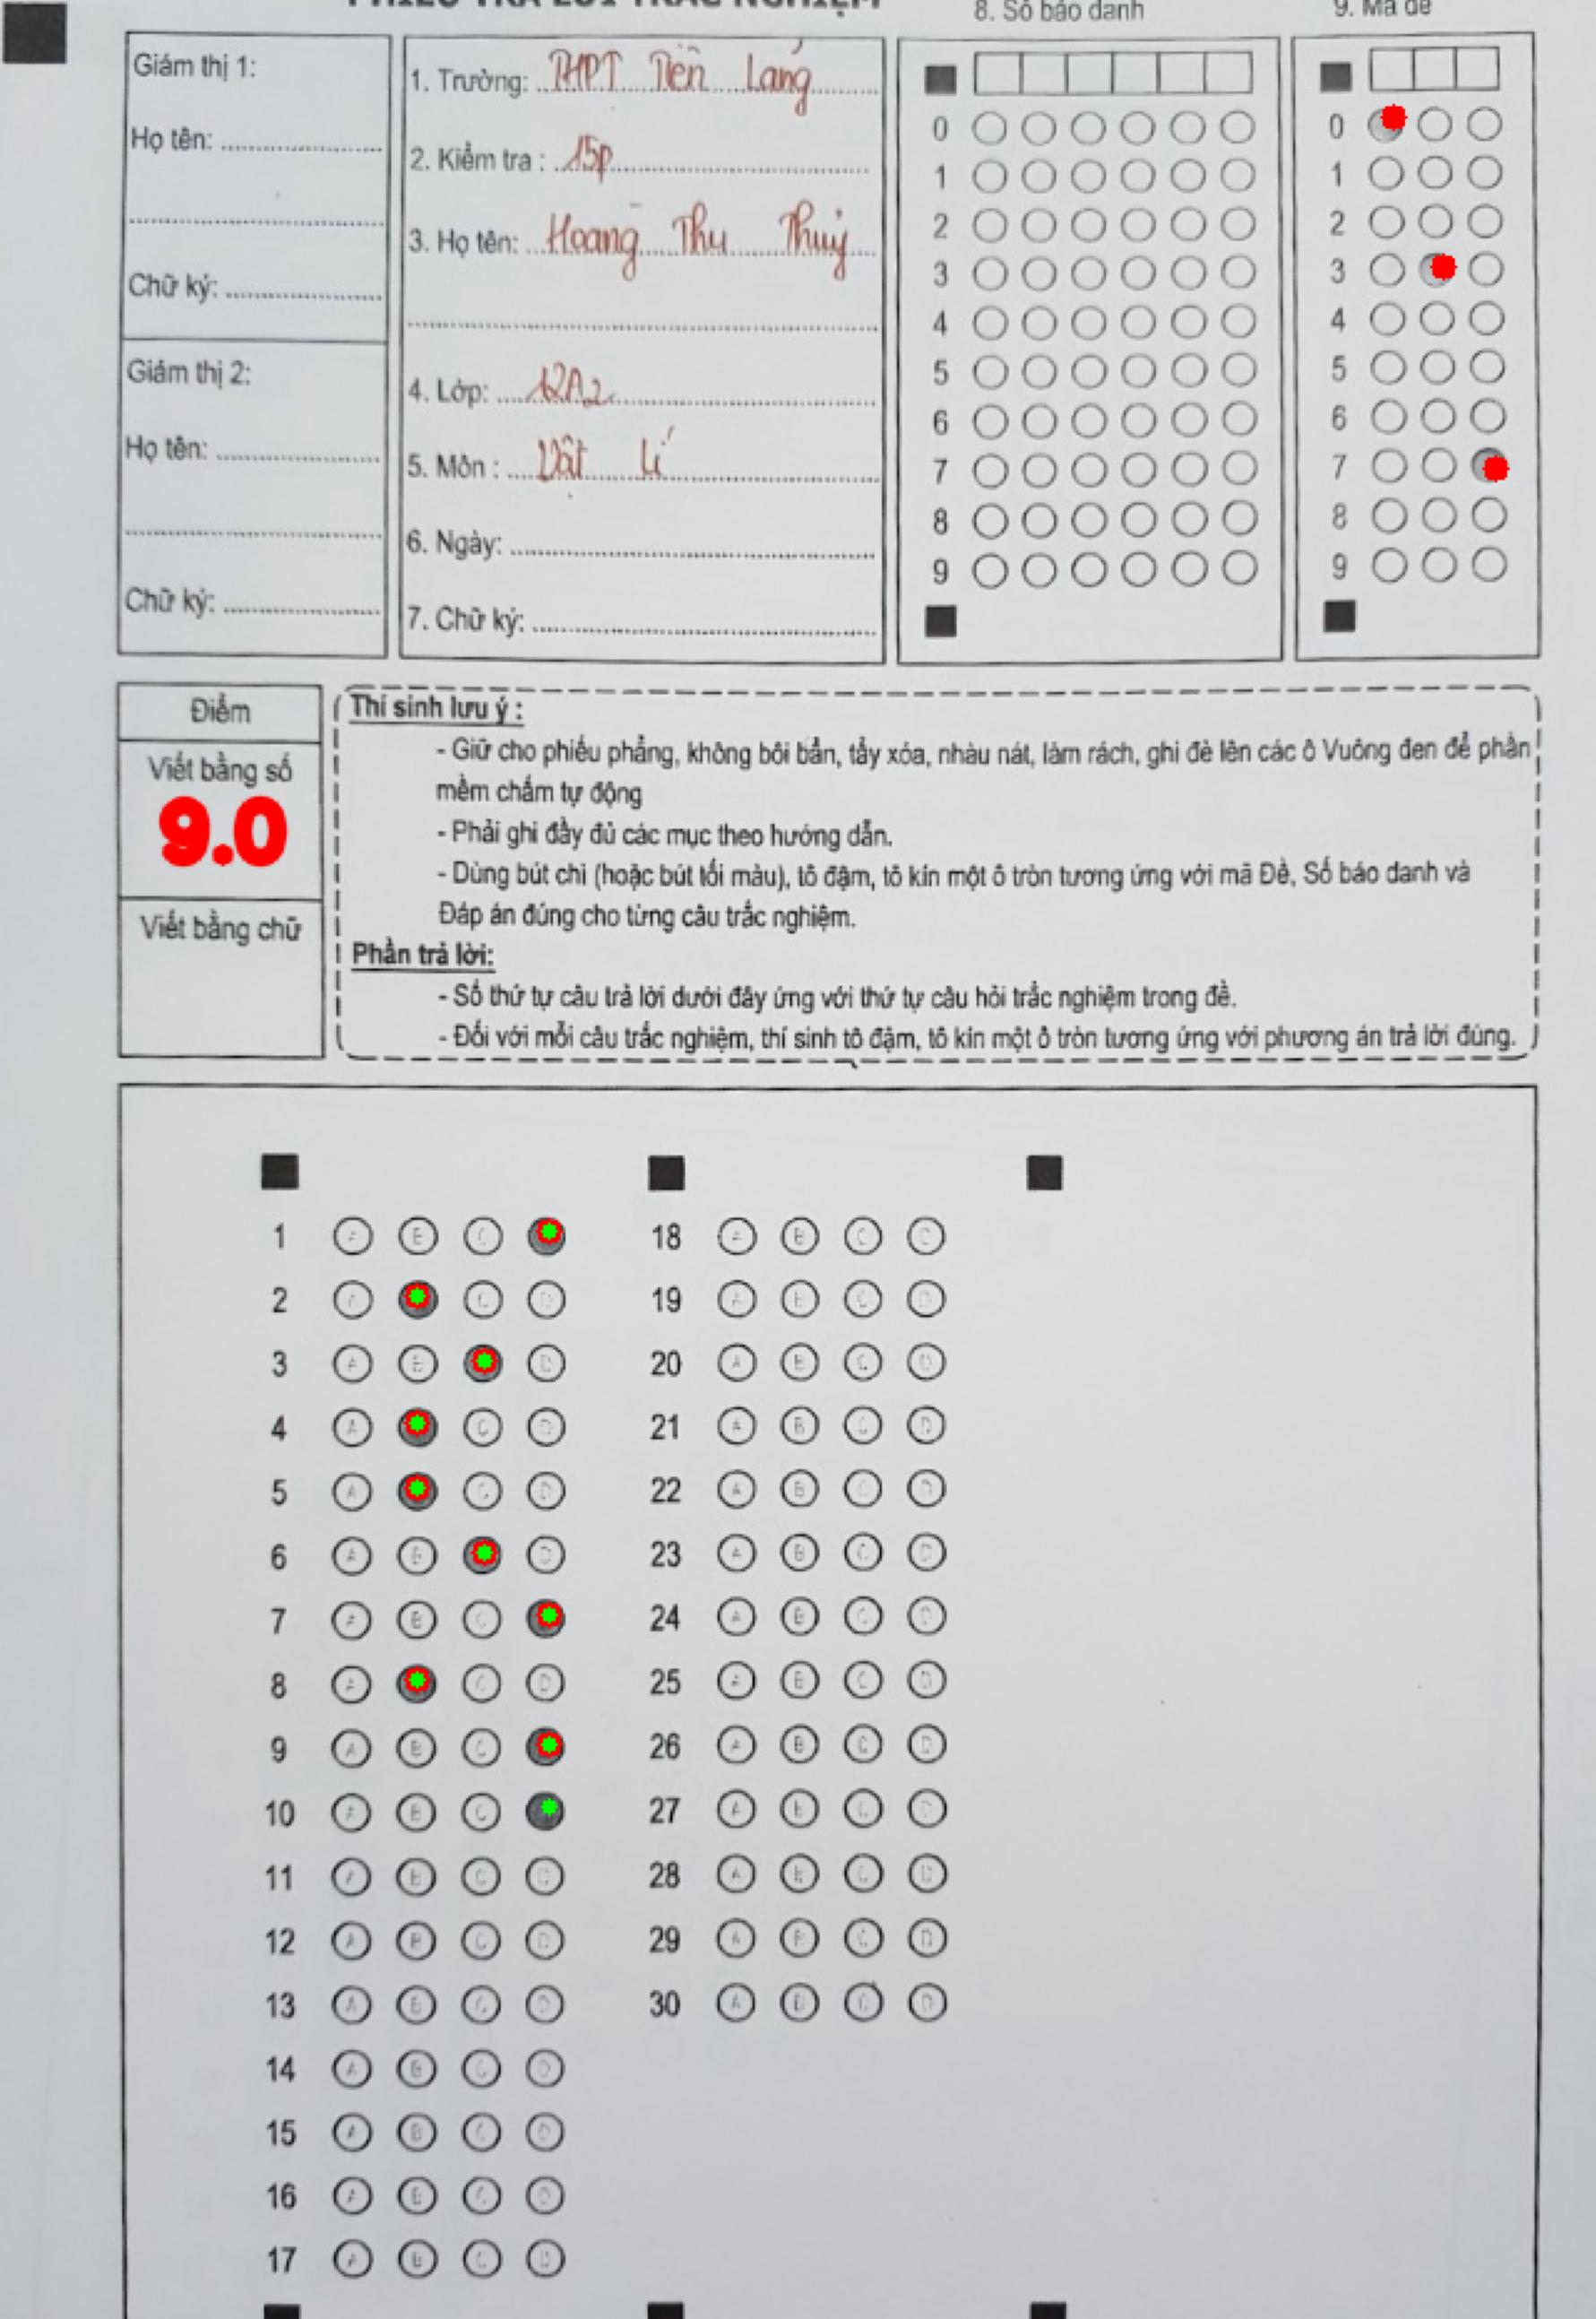 PHIẾU TRẢ LỜI TRẮC NGHIỆM
8. Số báo danh
9. Mã đề
Giám thị 1:
Họ tên:
Chữ ký:
Giám thị 2:
Họ tên:
Chữ ký:
1. Trường: THPT Tiên Lãng
2. Kiểm tra : 15p
3. Họ tên: Hoàng Thu Thuỷ
4. Lớp: 12A2
5. Môn : Vật lí
6. Ngày:
7. Chữ ký:
0
1
2
3
4
5
6
7
8
9
0
1
2
3
4
5
6
7
8
9
Điểm
Viết bằng số
9.0
Viết bằng chữ
Thí sinh lưu ý :
- Giữ cho phiếu phẳng, không bôi bẩn, tẩy xóa, nhàu nát, làm rách, ghi đè lên các ô Vuông đen để phần
mềm chấm tự động
- Phải ghi đầy đủ các mục theo hướng dẫn.
- Dùng bút chì (hoặc bút tối màu), tô đậm, tô kín một ô tròn tương ứng với mã Đề, Số báo danh và
Đáp án đúng cho từng câu trắc nghiệm.
Phần trả lời:
- Số thứ tự câu trả lời dưới đây ứng với thứ tự câu hỏi trắc nghiệm trong đề.
- Đối với mỗi câu trắc nghiệm, thí sinh tô đậm, tô kín một ô tròn tương ứng với phương án trả lời đúng.
1
2
3
4
5
6
7
8
9
10
11
12
13
14
15
16
17
18
19
20
21
22
23
24
25
26
27
28
29
30